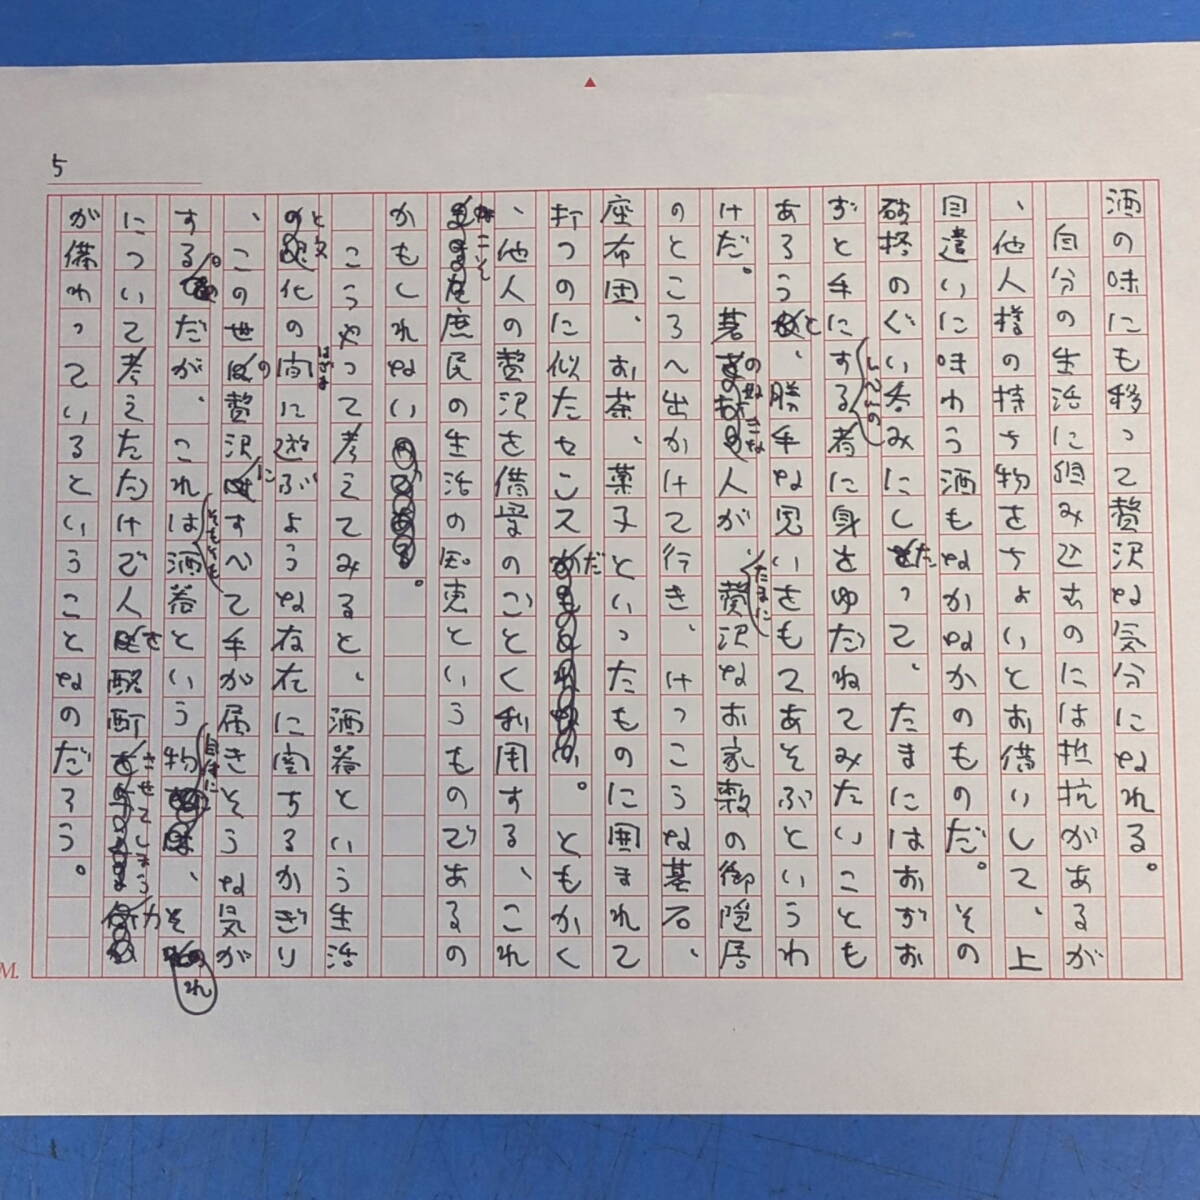 5
酒の味にも移って贅沢な気分になれる。
自分の生活に組み込むのには抵抗があるが
、他人様の持ち物をちょいとお借りして、上
目遣いに味わう酒もなかなかのものだ。その
猪口のぐい呑みにしたって、たまにはおずお
ずと手にしているの者に身をゆだねてみたいことも
あろうと、勝手な思いをもてあそぶというわ
けだ。碁の好きな人が、たまに贅沢なお家敷の御隠居
のところへ出かけて行き、けっこうな碁石、
座布団、お茶、菓子といったものに囲まれて
打つのに似たセコスだ。ともかく
、他人の贅沢を借景のごとく利用する、これ
こそ庶民の生活の知恵というものであるの
かもしれない。
こうやって考えてみると、酒器という生活
と文化のはざまに遊ぶような存在に関するかぎり
、この世の贅沢にすべて手が届きそうな気が
する。だが、これはそもそも酒器という物自体に、それ
について考えただけで人を酩酊させてしまう力
が備わっているということなのだろう。
M.